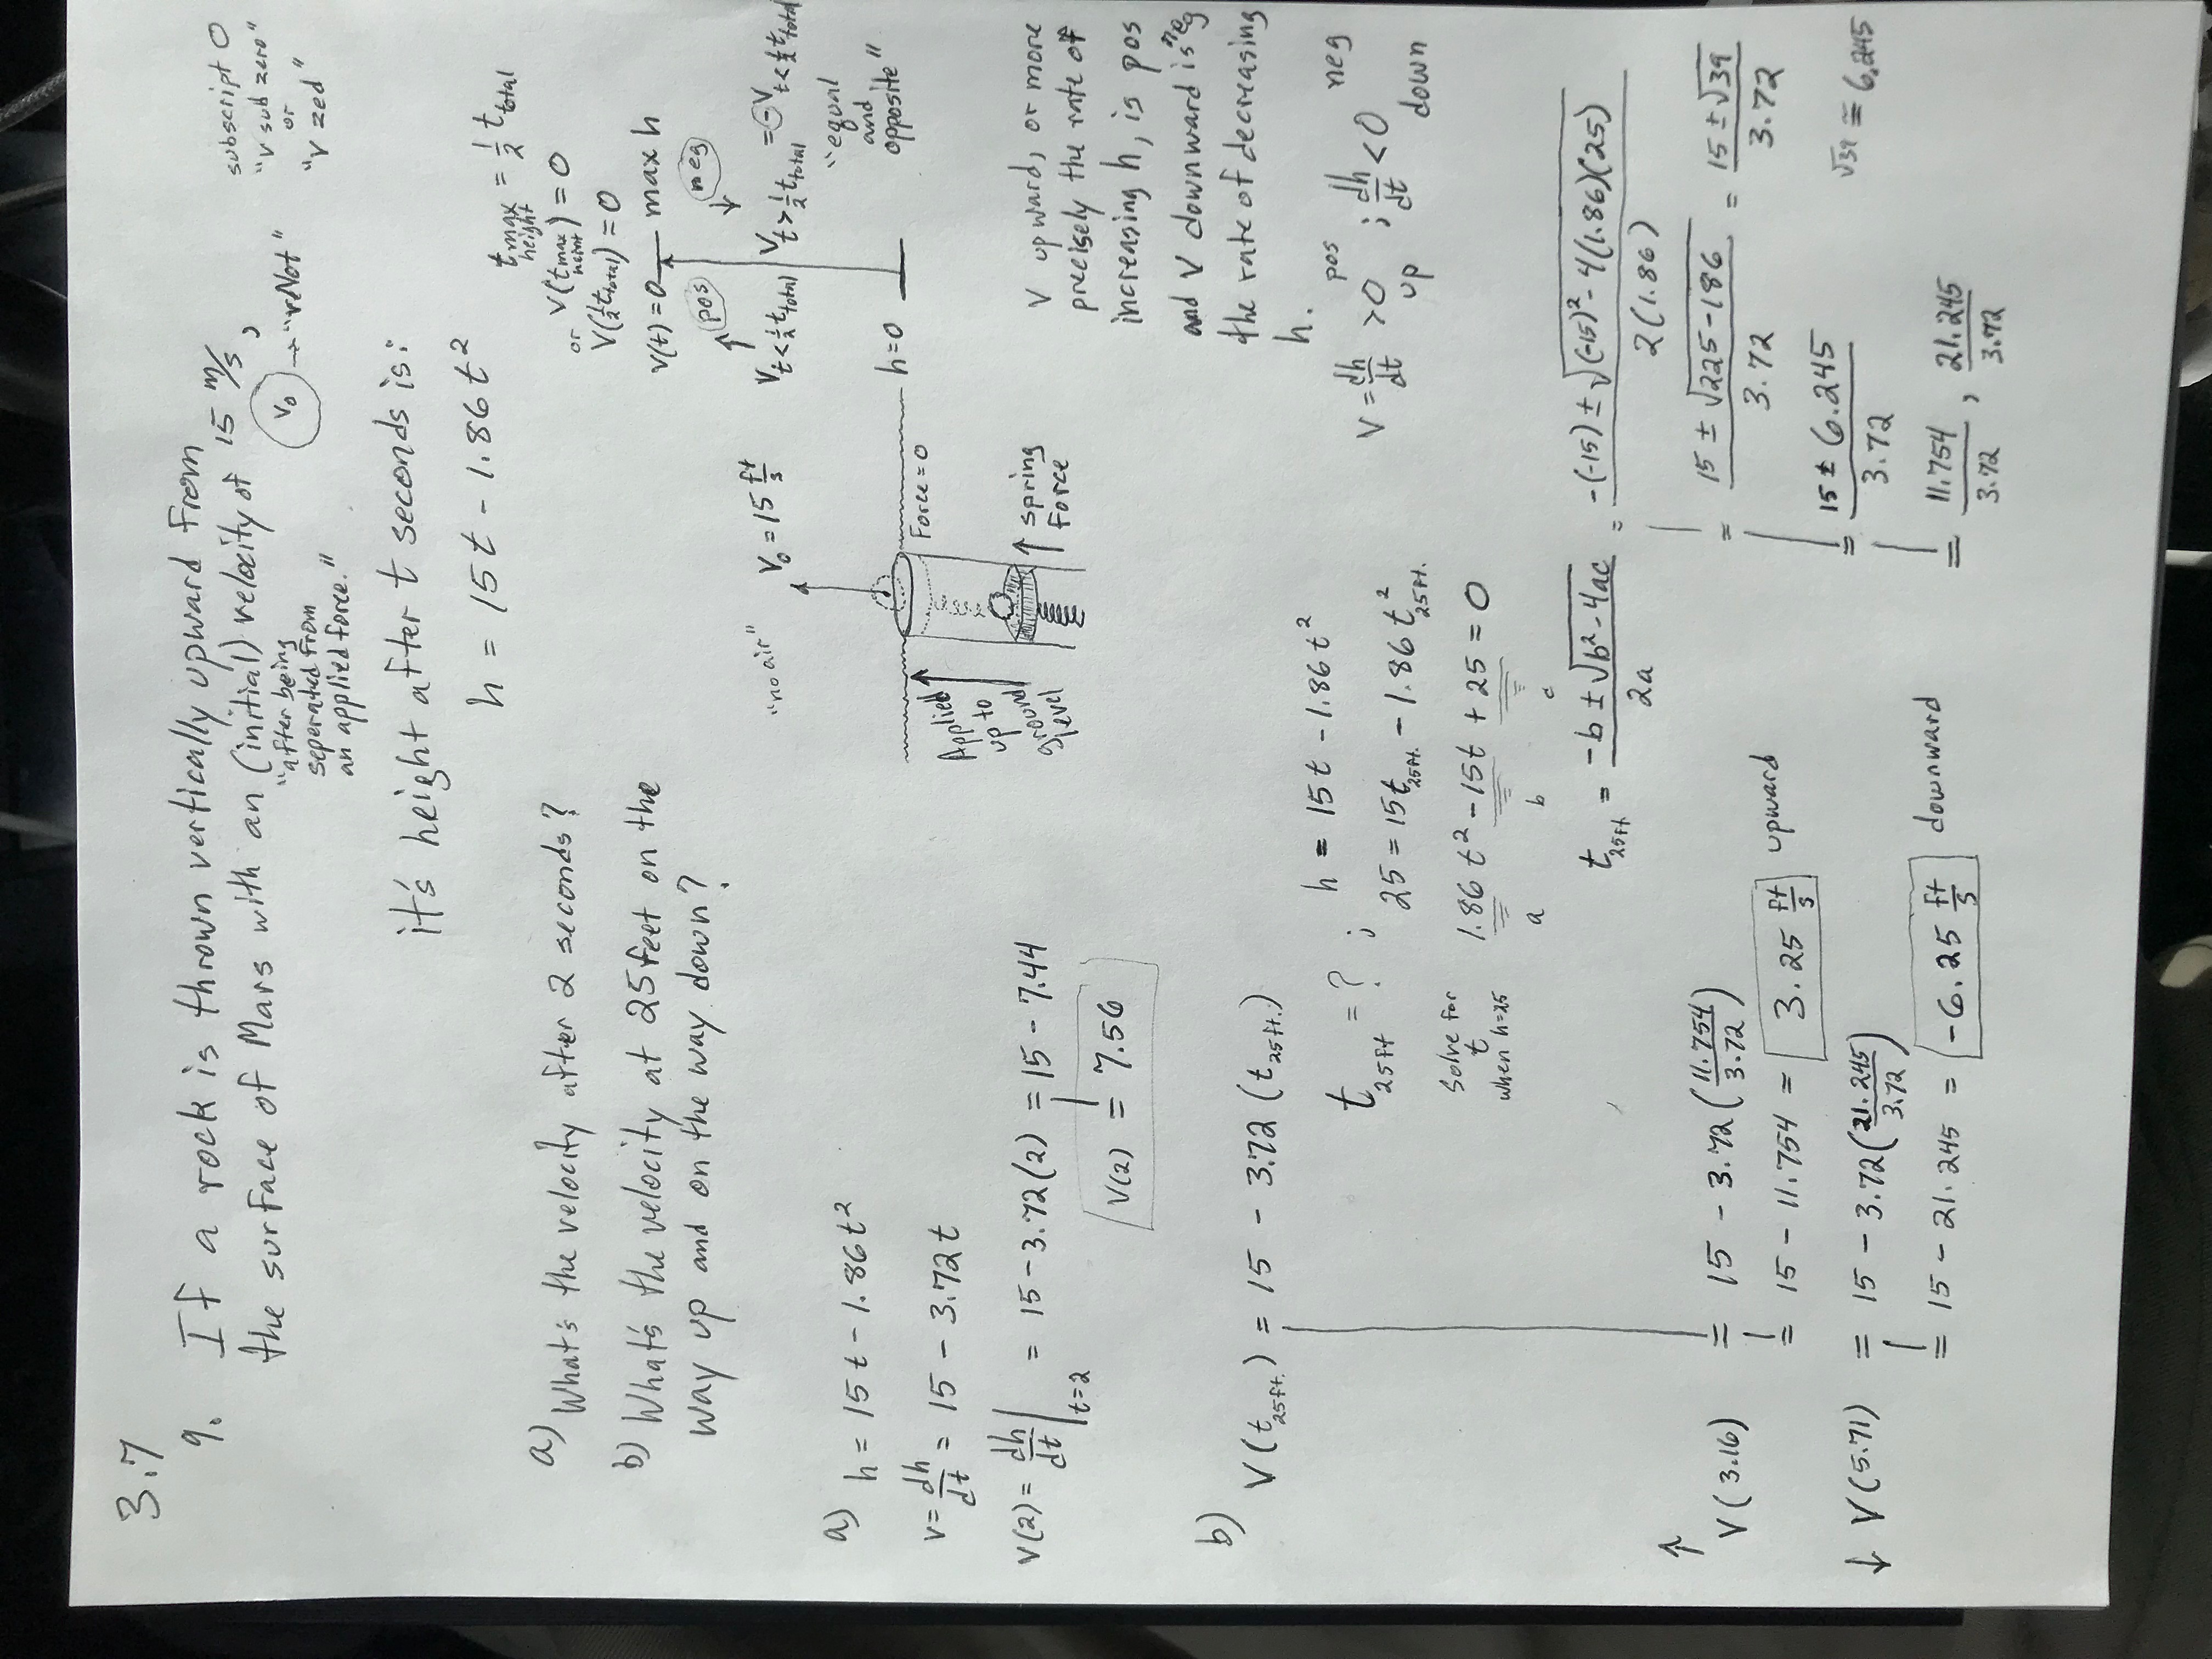 3.7
9. If a rock is thrown vertically upward from
the surface of Mars with an (initial) velocity of 15 m/s,
"after being
seperated from
an applied force."
V₀ → "vNot"
subscript 0
"V sub zero"
or
"V zed"
it's height after t seconds is:
h = 15t - 1.86t²
a) What's the velocity after 2 seconds?
b) What's the velocity at 25 feet on the
way up and on the way down?
t_max height = 1/2 t_total
or V(t_max heint) = 0
V(1/2 t_total) = 0
V(t) = 0 max h
pos
neg
V_t < 1/2 t_total
V_t > 1/2 t_total = -V_t < 1/2 t_total
"equal
and
opposite"
"no air"
V₀ = 15 ft/s
h = 0
Force = 0
Applied
up to
ground
level
spring
Force
a) h = 15t - 1.86t²
v = dh/dt = 15 - 3.72t
V(2) = dh/dt |t=2 = 15 - 3.72(2) = 15 - 7.44
V(2) = 7.56
V upward, or more
precisely the rate of
increasing h, is pos
and V downward is neg
the rate of decreasing
h.
V = dh/dt > 0 pos up ; dh/dt < 0 neg down
b)
V(t_25ft.) = 15 - 3.72 (t_25ft.)
t_25ft = ? ; h = 15t - 1.86t²
25 = 15t_25ft. - 1.86t²_25ft.
Solve for
t
when h=25
1.86t² - 15t + 25 = 0
a b c
t_25ft = (-b ± √(b² - 4ac)) / 2a = (-(-15) ± √((-15)² - 4(1.86)(25))) / 2(1.86)
= (15 ± √(225 - 186)) / 3.72 = (15 ± √39) / 3.72
= (15 ± 6.245) / 3.72
√39 ≅ 6.245
= 11.754/3.72 , 21.245/3.72
↑ V(3.16) = 15 - 3.72 (11.754/3.72)
= 15 - 11.754 = 3.25 ft/s upward
↓ V(5.71) = 15 - 3.72 (21.245/3.72)
= 15 - 21.245 = -6.25 ft/s downward